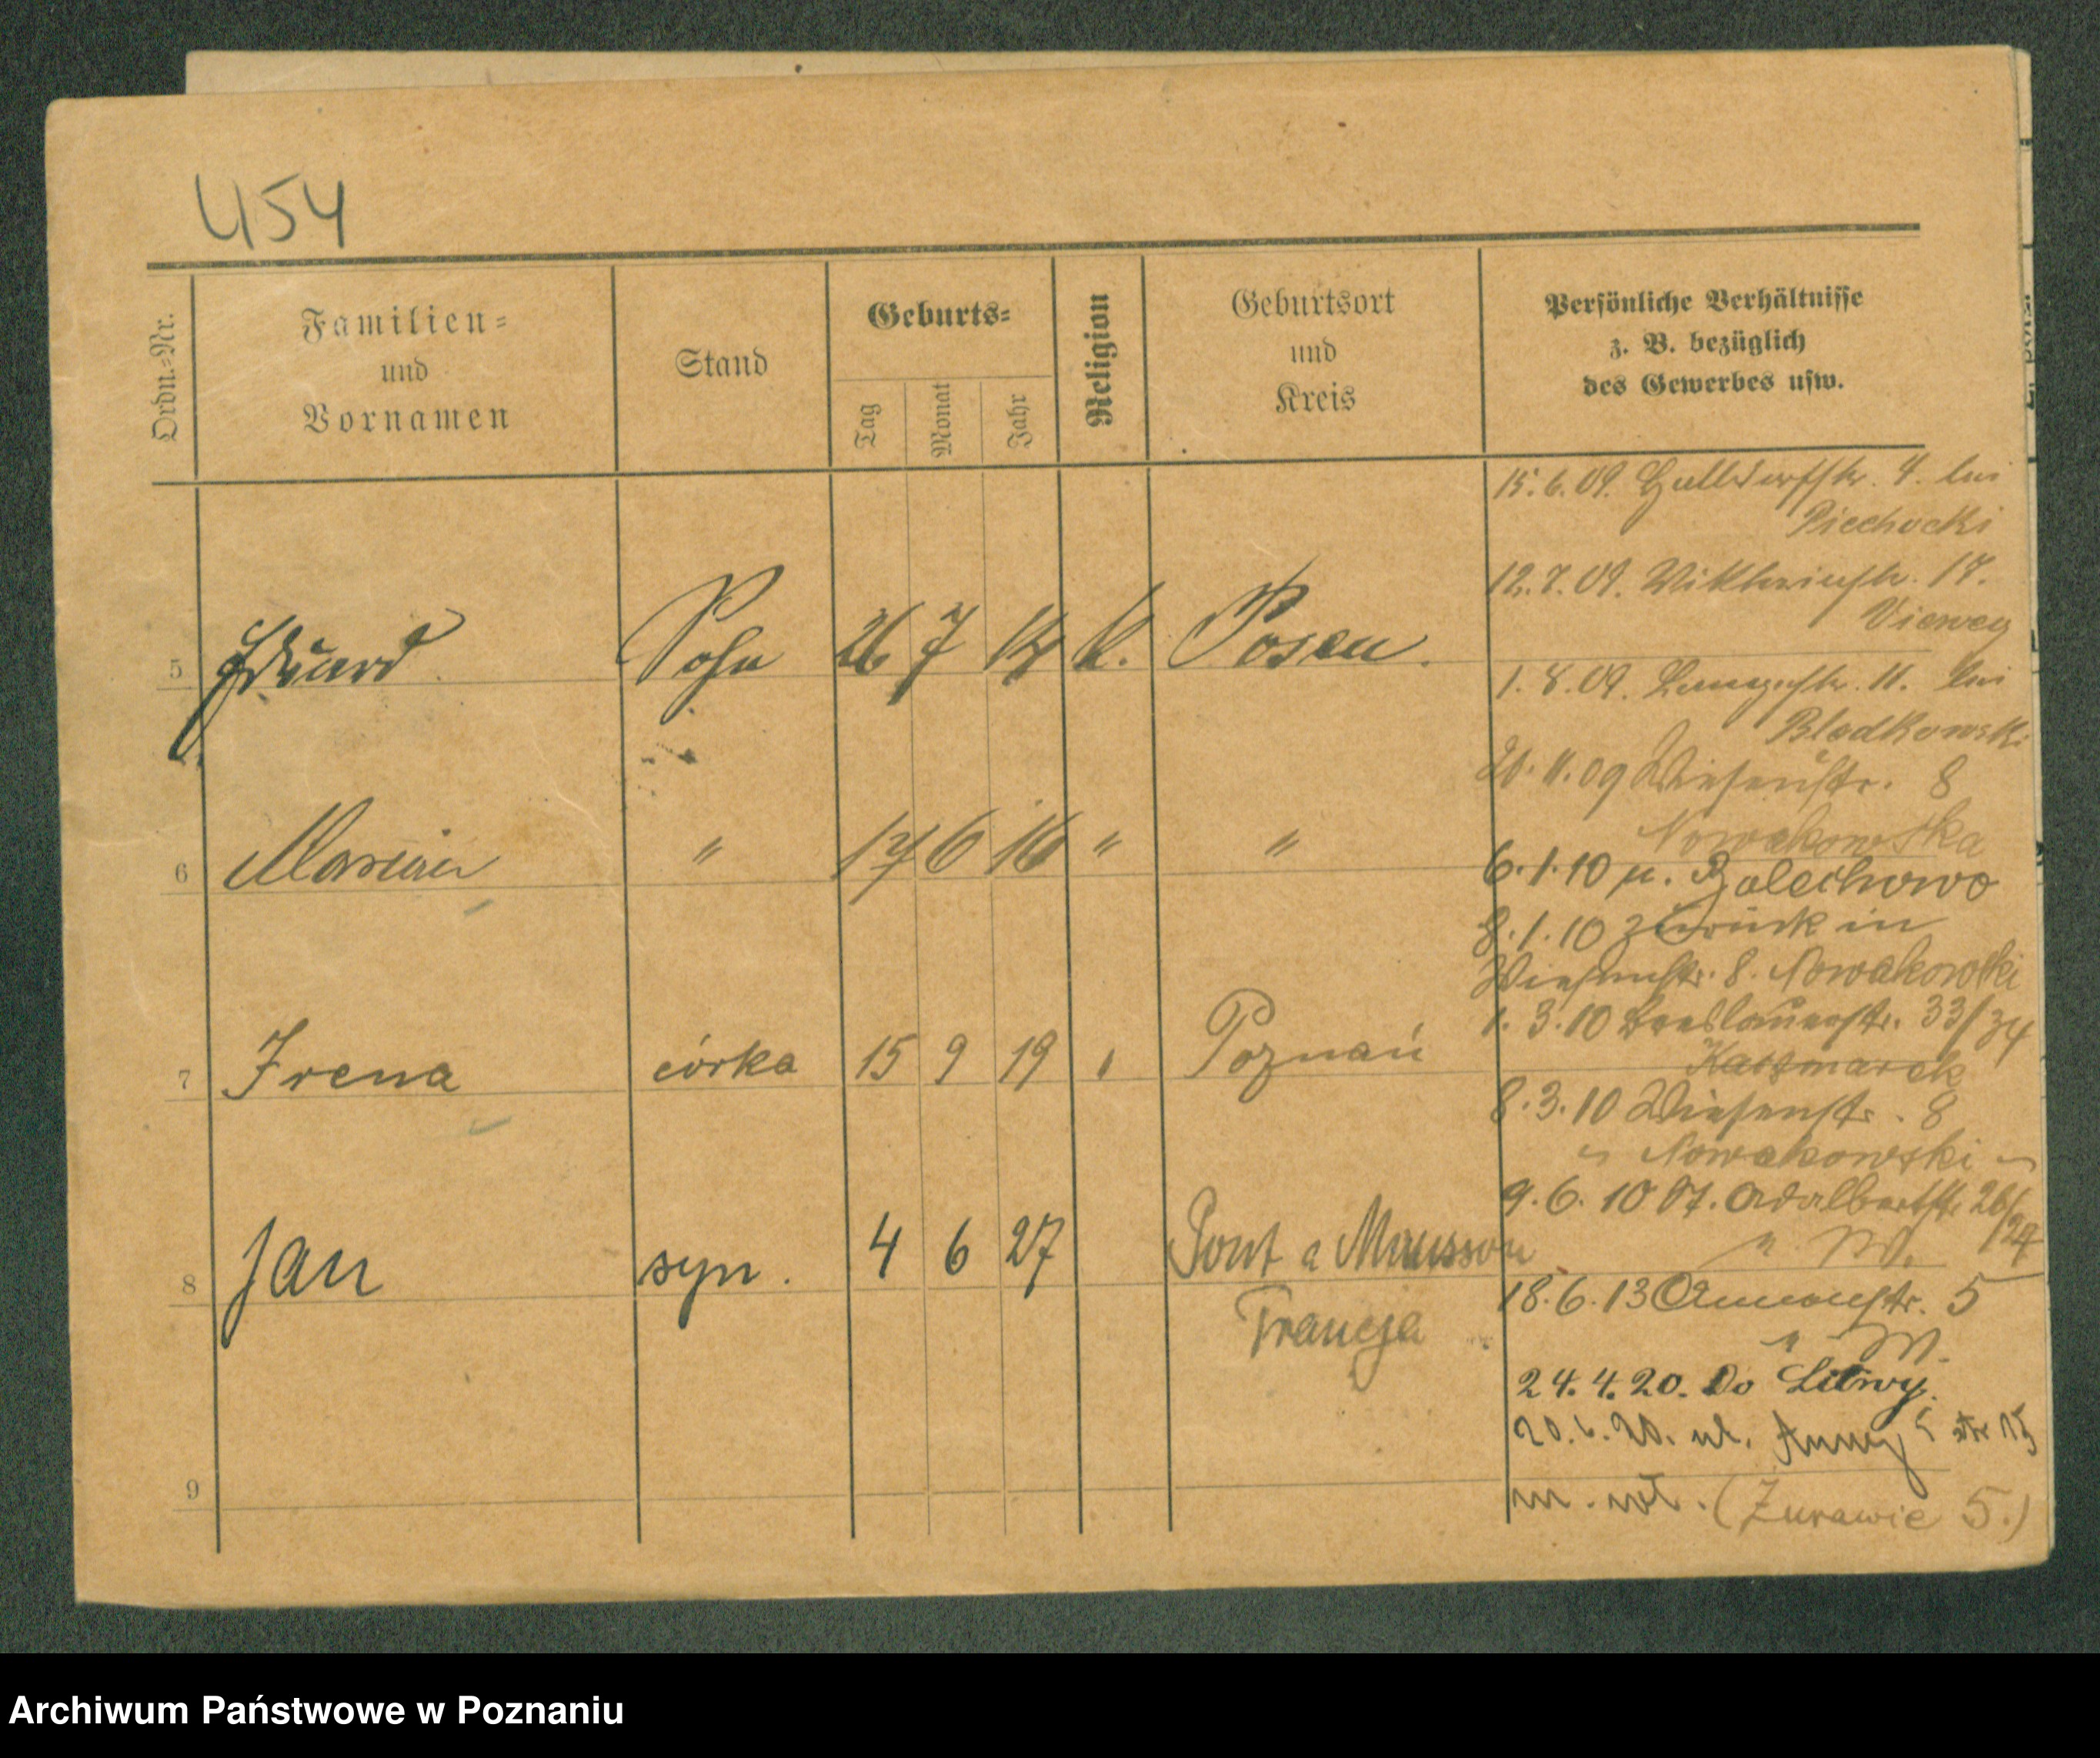 454
Ordn.=Nr.
Familien=
und
Vornamen
Stand
Geburts=
Tag
Monat
Jahr
Religion
Geburtsort
und
Kreis
Persönliche Verhältnisse
z. B. bezüglich
des Gewerbes usw.
5 Eduard Sohn 26 7 14 k. Posen.
6 Marian " 17 6 16 " "
7 Irena córka 15 9 19 " Poznań
8 Jan syn. 4 6 27 Pont a Mousson
Francja
9
15.6.09. 4. bei
Piechocki
12.7.09. Viktoriastr. 17.
Vieweg
1.8.09. 11. bei
20.11.09 Wiesenstr. 8
Nowakowska
6.1.10 n. Bolechowo
8.1.10 zurück in
Wiesenstr. 8. Nowakowski
1.3.10 Breslauerstr. 33/34
Kaczmarek
8.3.10 Wiesenstr. 8
" Nowakowski "
9.6.10 St. Adalbertstr. 26/27
" W.
18.6.13 5
" W.
24.4.20. Do Litwy.
20.6.20. ul. Anny
m. wł. (Żurawie 5.)
Archiwum Państwowe w Poznaniu